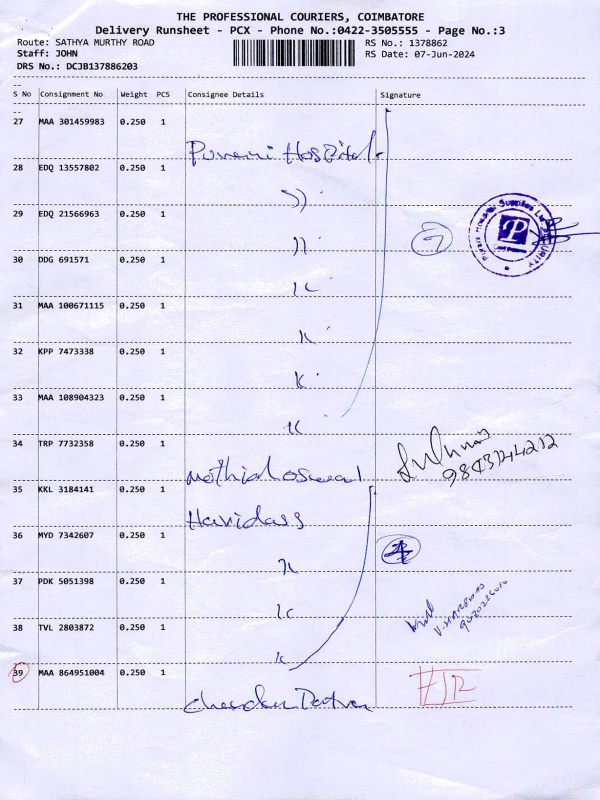 THE PROFESSIONAL COURIERS, COIMBATORE
Delivery Runsheet - PCX - Phone No.:0422-3505555 - Page No.:3
Route: SATHYA MURTHY ROAD RS No.: 1378862
Staff: JOHN RS Date: 07-Jun-2024
DRS No.: DCJB137886203
S No Consignment No Weight PCS Consignee Details Signature
27 MAA 301459983 0.250 1
Hospital
28 EDQ 13557802 0.250 1
29 EDQ 21566963 0.250 1
7
30 DDG 691571 0.250 1
31 MAA 100671115 0.250 1
32 KPP 7473338 0.250 1
33 MAA 108904323 0.250 1
34 TRP 7732358 0.250 1
35 KKL 3184141 0.250 1
Haridass
36 MYD 7342607 0.250 1
4
37 PDK 5051398 0.250 1
38 TVL 2803872 0.250 1
39 MAA 864951004 0.250 1